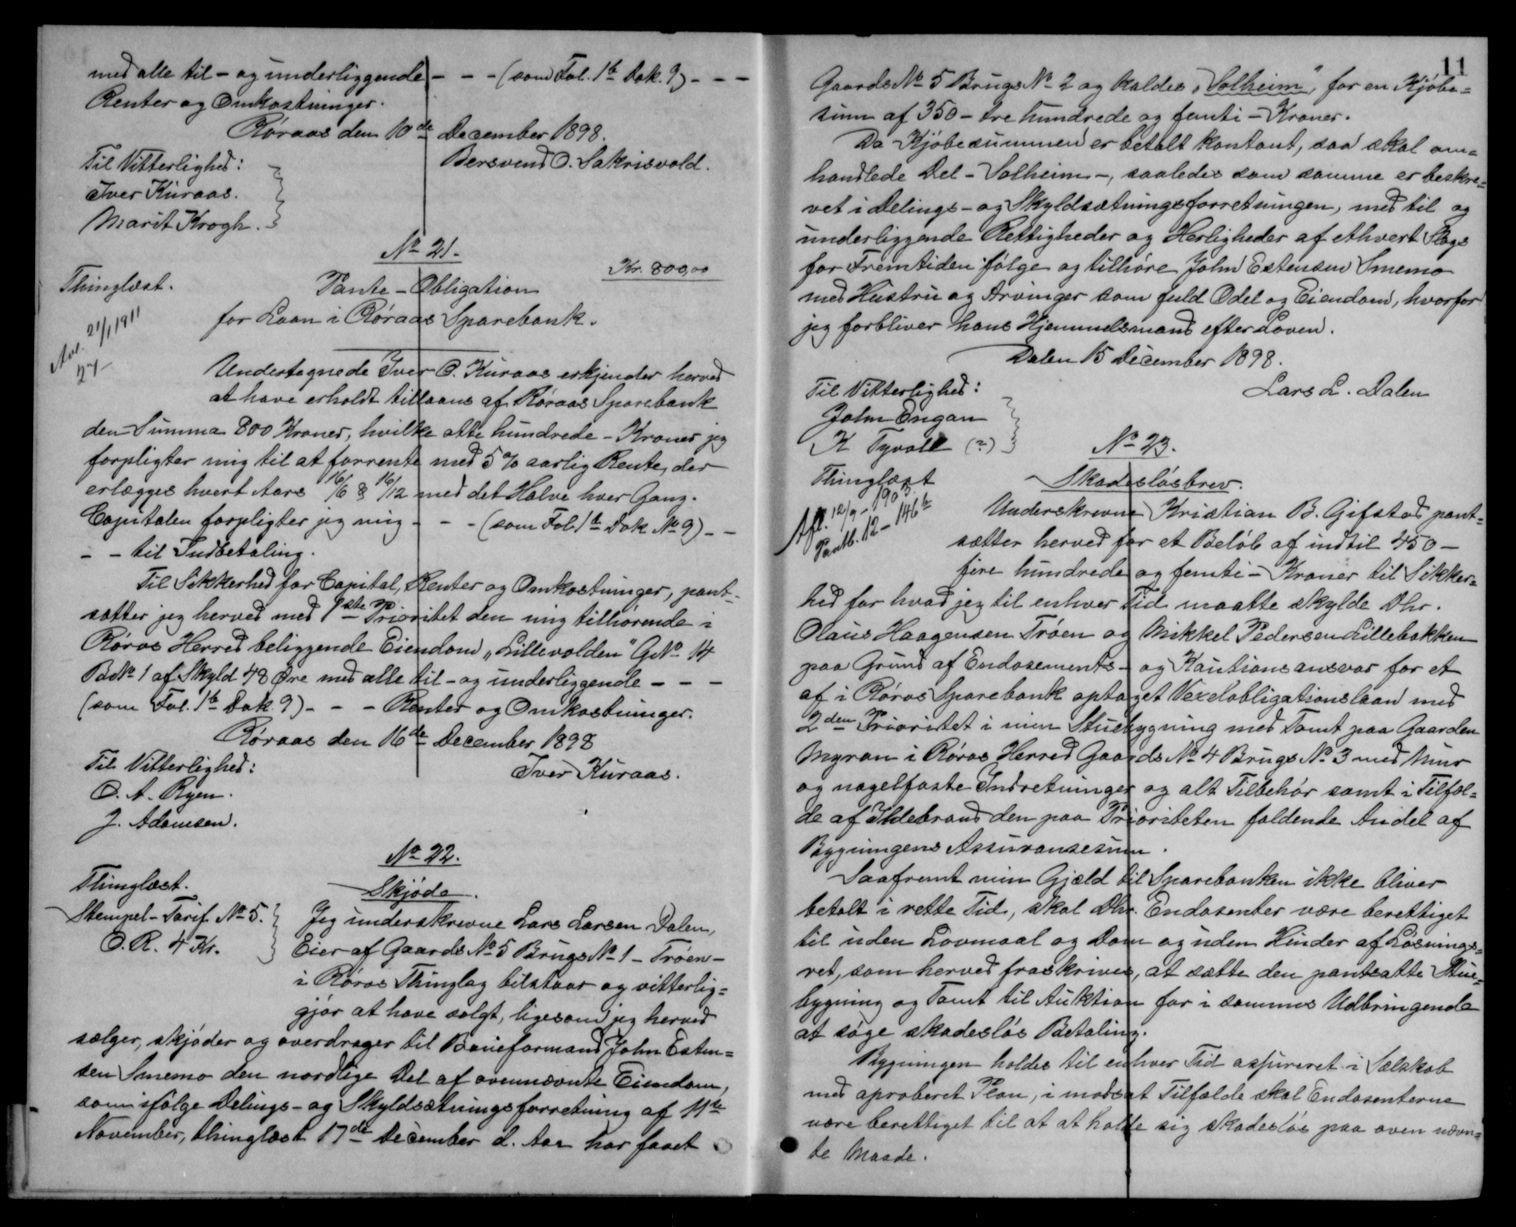 med alle til - og underliggende - - - (som Fol. 1b Dok. 9) - - -
Renter og Omkostninger.
Röraas den 10de December 1898.
Til Vitterlighed: Bersvend O. Sakrisvold.
Iver Kuraas.
Marit Krogh.
No 21.
Kr. 800,00
Thinglæst. Pante - Obligation
for Laan i Röraas Sparebank.
Avl. 21/1 1911
27-
Undertegnede Iver O. Kuraas erkjender herved
at have erholdt tillaans af Röraas Sparebank
den Summa 800 Kroner, hvilke otte hundrede - Kroner jeg
forpligter mig til at forrente med 5 % aarlig Rente, der
erlægges hvert Aars 16/6 & 16/12 med det Halve hver Gang.
Capitalen forpligter jeg mig - - - (som Fol. 1b Dok No 9) - -
- - til Indbetaling.
Til Sikkerhed for Capital, Renter og Omkostninger, pant-
sætter jeg herved med 1ste Prioritet den mig tilhörende i
Röros Herred beliggende Eiendom „Lillevolden" GNo 14
BNo 1 af Skyld 48 Øre med alle til - og underliggende - - -
(som Fol. 1b Dok 9) - - - Renter og Omkostninger.
Röraas den 16de December 1898
Til Vitterlighed: Iver Kuraas.
O. A. Ryen.
J. Adamsen.
No 22.
Thinglæst. Skjöde.
Stempel - Tarif No 5.
O. R. 4 Kr.
Jeg underskrevne Lars Larsen Dalen,
Eier af Gaards No 5 Brugs No 1 - Tröen -
i Röros Thinglag tilstaar og vitterlig=
gjör at have solgt, ligesom jeg herved
sælger, skjöder og overdrager til Baneformand John Esten=
sen Smemo den nordlige Del af ovennævnte Eiendom,
som ifölge Delings - og Skyldsætningsforretning af 11te
November, thinglæst 17de December d. Aar har faaet
11
Gaards No 5 Brugs No 2 og kaldes „Solheim", for en Kjöbe=
sum af 350 - tre hundrede og femti - Kroner.
Da Kjöbesummen er betalt kontant, saa skal om=
handlede Del - Solheim -, saaledes som samme er beskre=
vet i Delings - og Skyldsætningsforretningen, med til og
underliggende Rettigheder og Herligheder af ethvert Slags
for Fremtiden fölge og tilhöre John Estensen Smemo
med Hustru og Arvinger som fuld Odel og Eiendom, hvorfor
jeg forbliver hans Hjemmelsmand efter Loven.
Dalen 15 December 1898.
Til Vitterlighed: Lars L. Dalen
John Engan
K Tyvoll (?)
No 23.
Thinglæst Skadeslösbrev.
Afl. 12/9 - 1903
Pantb. 12 - 146b
Underskrevne Kristian B. Gifstad pant=
sætter herved for et Belöb af indtil 450 -
fire hundrede og femti - Kroner til Sikker=
hed for hvad jeg til enhver Tid maatte skylde Dhr.
Olaus Haagensen Tröen og Mikkel Pedersen Lillebakken
paa Grund af Endosements - og Kautionsansvar for et
af i Röros Sparebank optaget Vexelobligationslaan med
2den Prioritet i min Stuebygning med Tomt paa Gaarden
Myran i Röros Herred Gaards No 4 Brugs No 3 med Mur
og nagelfaste Indretninger og alt Tilbehör samt i Tilfæl=
de af Ildebrand den paa Prioriteten faldende Andel af
Bygningens Assuransesum.
Saafremt min Gjæld til Sparebanken ikke bliver
betalt i rette Tid, skal Dhr. Endosenter være berettiget
til uden Lovmaal og Dom og uden Hinder af Lösnings=
ret, som herved fraskrives, at sætte den pantsatte Stue=
bygning og Tomt til Auktion for i sammes Udbringende
at söge skadeslös Betaling.
Bygningen holdes til enhver Tid assureret i Selskab
med aproberet Plan, i modsat Tilfælde skal Endosenterne
være berettiget til at at holde sig skadeslös paa oven nævn=
te Maade.